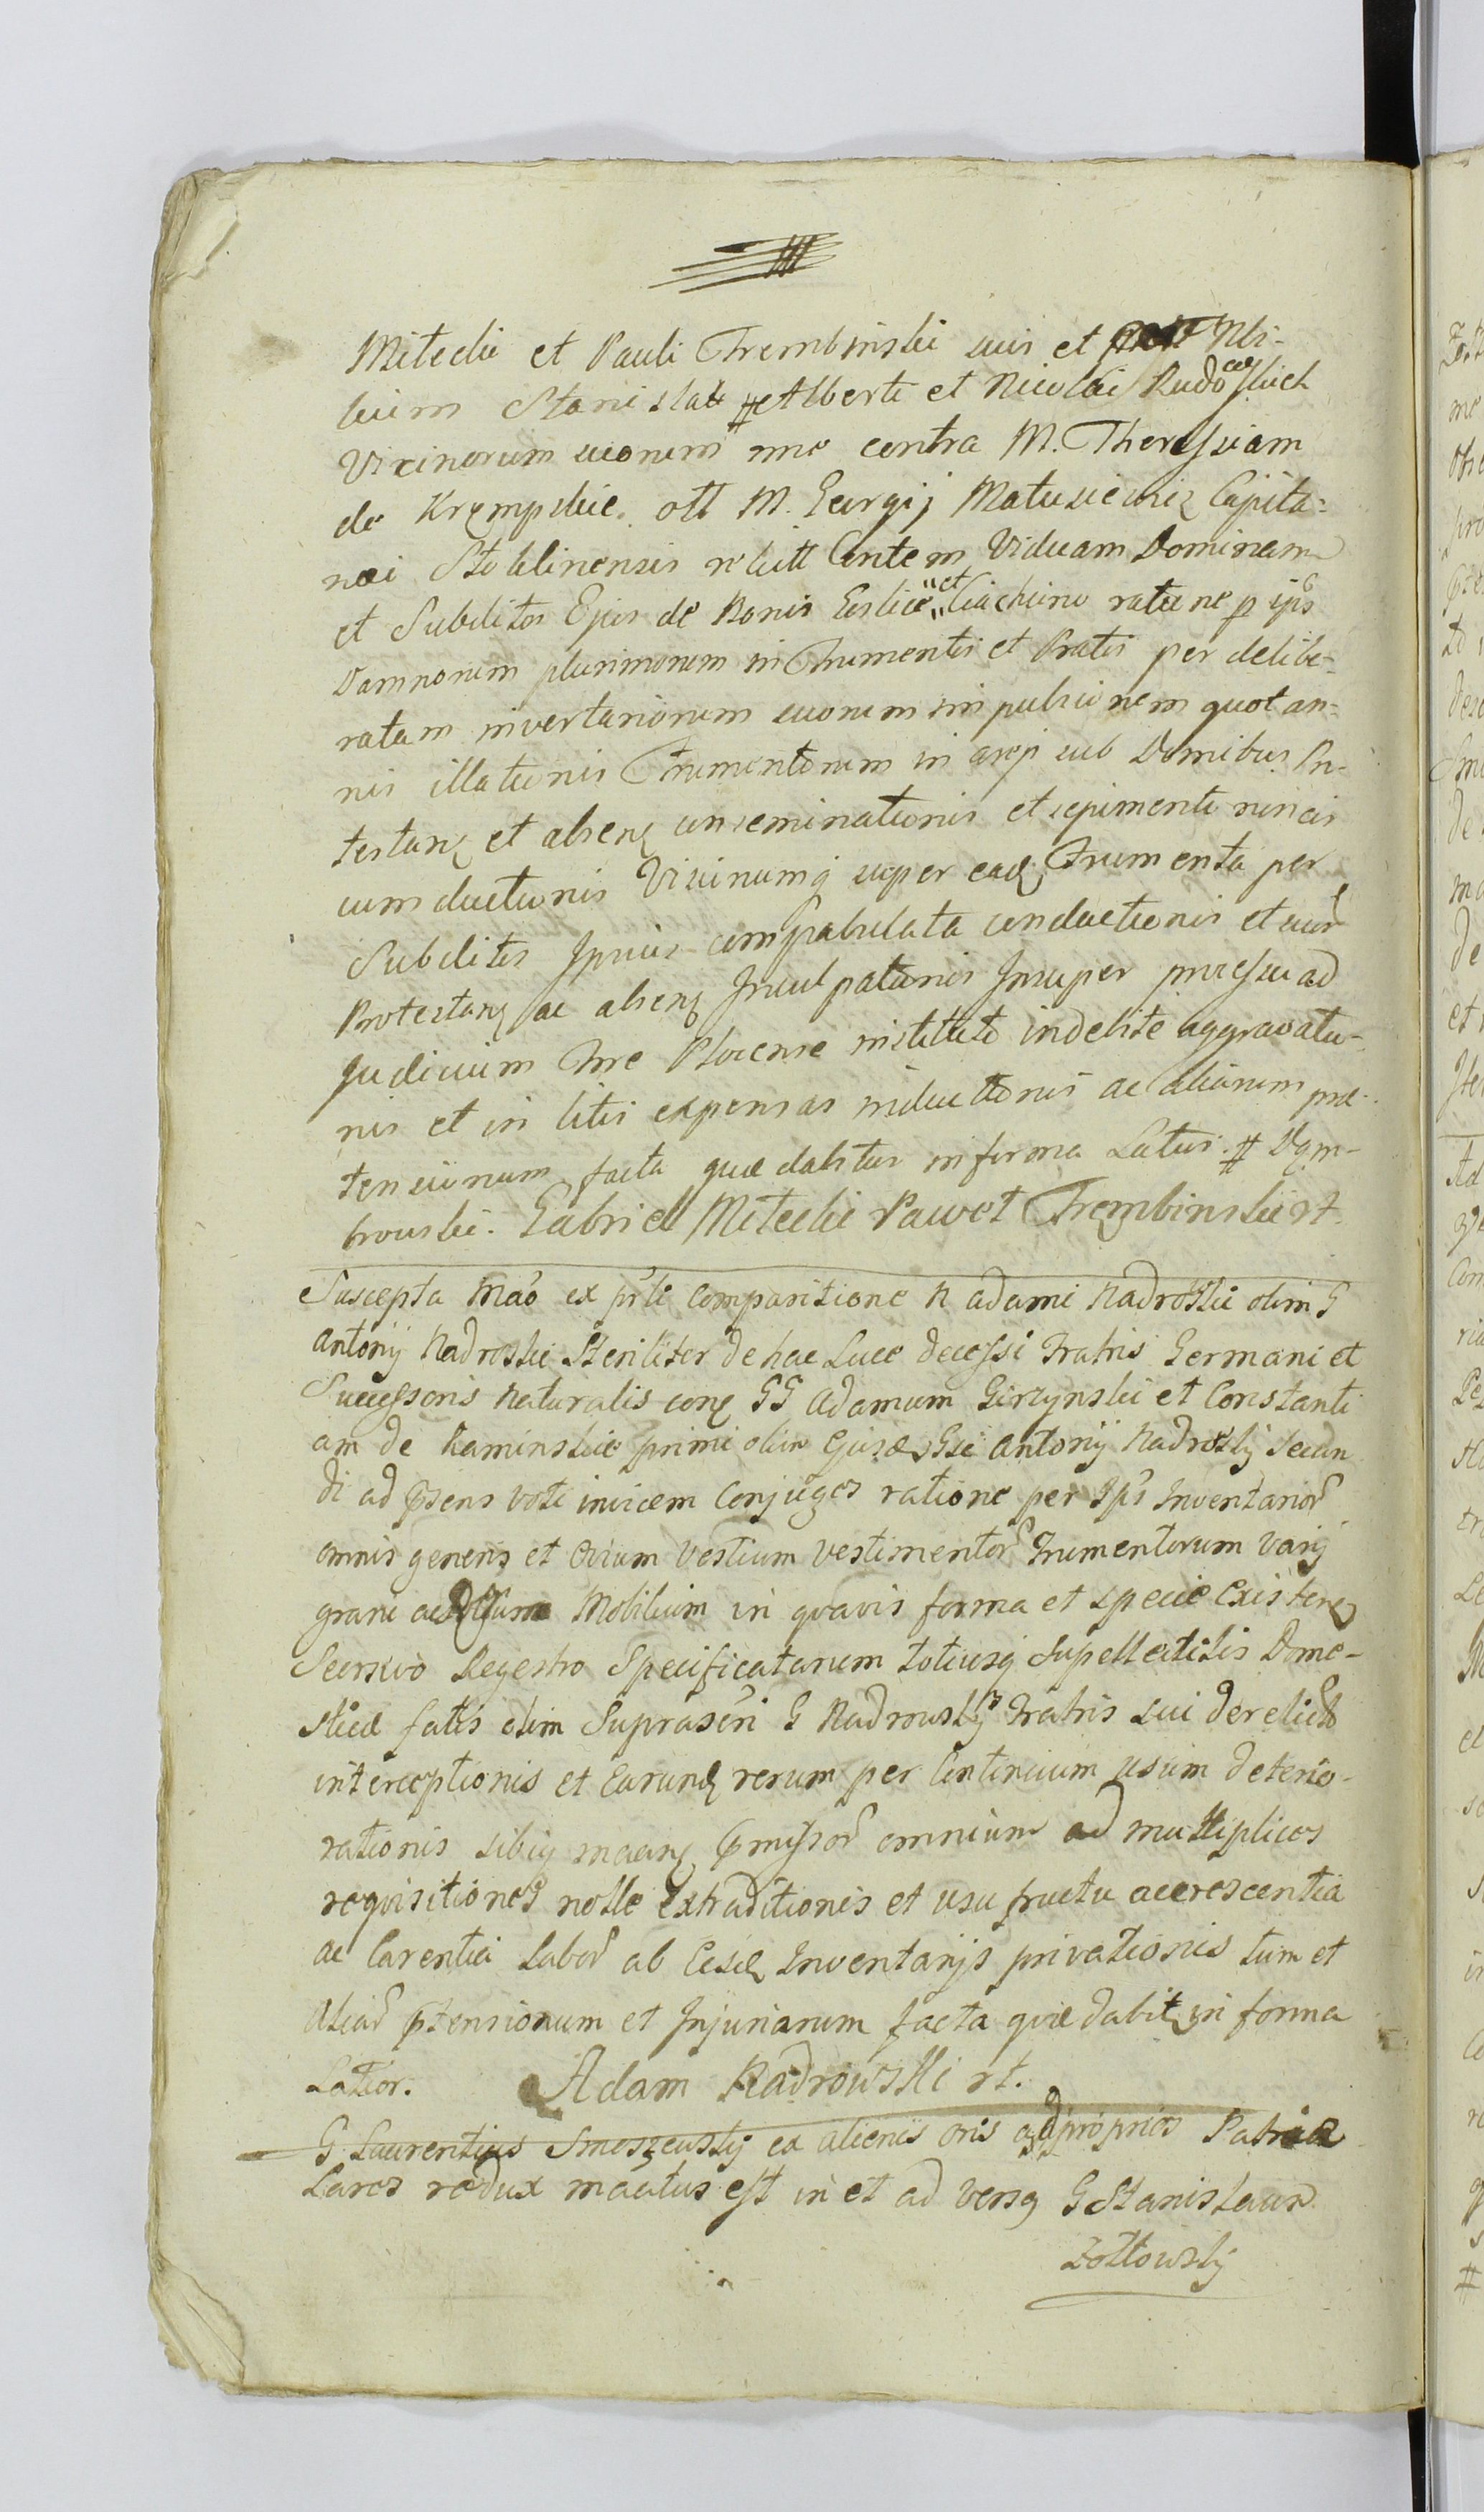 Mitecki et Pauli Trembinski suis et Nbi-
lium Stanislai # Alberti et Nicolai Rudowskich
Vicinorum suorum nne contra M. Theressiam
de Krempskie. olt M. Georgij Matusiewicz Capita:
nei Stoklinensis relictt Contem Viduam Dominam
et Subditos Ejus de Bonis et Ciachcino ratione p ips
Damnorum plurimorum in Frumentis et Pratis per delibe-
ratam inventariorum suorum impulsionem quotan-
nis illationis Frumentorum in sub Domibus Pro-
testanz et absenz conseminationis et sepimenti nuncis
cum ductionis Vicinumq super eadz Frumenta per
Subditos Ipsius compabulata conductionis et
Protestanz ac absenz Inculpationis Insuper processu ad
Judicium Tire Plocense instituto indebite aggravatio-
nis et in litis expensas inductionis ac aliarum prae-
tensionum facta quae dabitur in forma Latiri. # Dom-
browski. Gabriel Mitecki Paweł Trembinski rt.
Suscepta Mão ex prli Comparitione N adami Nadroski olim G
Antonij Nadroski Steriliter de hac Luce decessi Fratris Germani et
Successoris Naturalis conz GG Adamum Girzynski et Constanti
am de Kaminskie primi olim Antonij Nadroskij secun
di ad pṡens voti invicem Conjuges ratione per Ips Inventarior
omnis generis et Ovium Vestium vestimentor Frumentorum varij
grani Mobilium in qvavis forma et specie Existenz
Seorsivo Regestro Specificatarum totiusq Supellectilis Dome-
sticae fatis olim Suprascri G Nadrowskij Fratris sui derelicto
interceptionis et Earundz rerum per Continuum usum deterio-
rationis sibiq maanz pmissor omnium ad multiplices
reqvisitiones nolle Extraditionis et usu fructu accrescentia
ac Carentia Labor ab Eisdz Inventarijs privationis tum et
Aliar ptensionum et Injuriarum facta qvae dabitz in forma
Latior. Adam Nadrowski rt.
G Laurentius Smoszewskij ex alienis oris ad proprios Patriae
Lares redux mactus est in et ad versq G Stanislaum
Zołtowskij